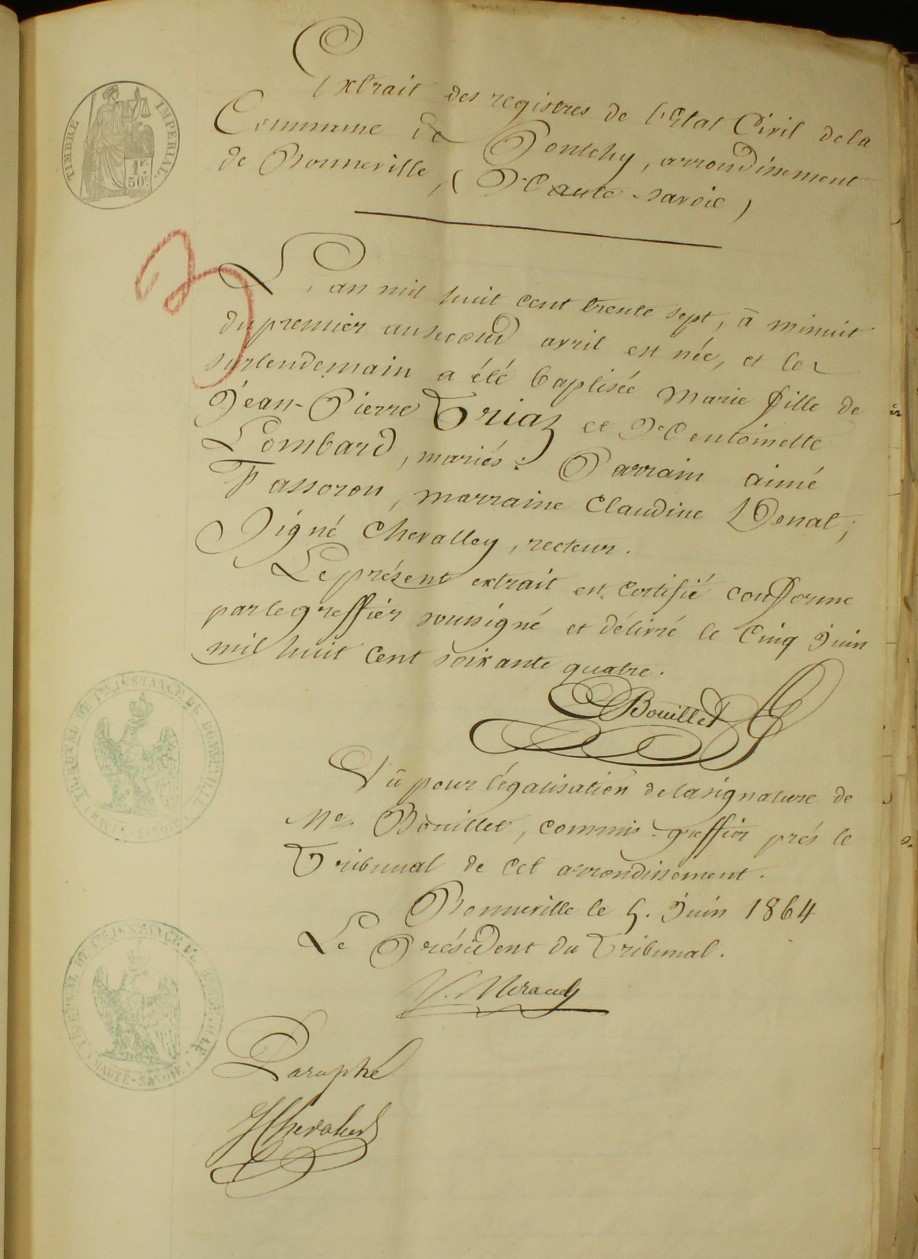 TIMBRE IMPERIAL
1F
50c
Extrait des registres de l'Etat Civil de la
Commune de Pontchy, arrondissement
de Bonneville, (Haute-Savoie)
3
L'an mil huit cent trente sept, à minuit
du premier au second avril est née, et le
surlendemain a été baptisée Marie fille de
Jean-Pierre Briaz et d'Antoinette
Lombard, mariés: Parrain aimé
Fassoron, marraine Claudine Donat;
Signé Chevalley, recteur.
Le présent extrait est certifié conforme
par le greffier soussigné et délivré le Cinq Juin
mil huit cent soixante quatre.
Bouillet
TRIBUNAL DE 1re INSTANCE DE BONNEVILLE
Vu pour légalisation de la signature de
Me Bouillet, commis-greffier près le
Tribunal de cet arrondissement.
Bonneville le 5. Juin 1864
Le Président du Tribunal.
TRIBUNAL DE 1re INSTANCE DE BONNEVILLE
HAUTE-SAVOIE
Paraphé